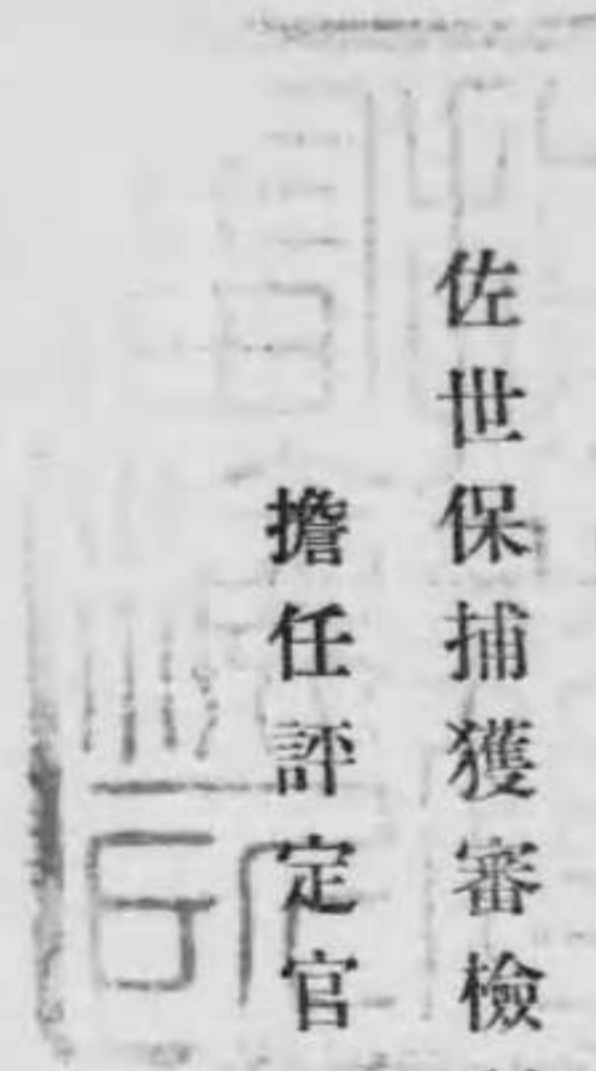 佐世保捕獲審檢
擔任評定官